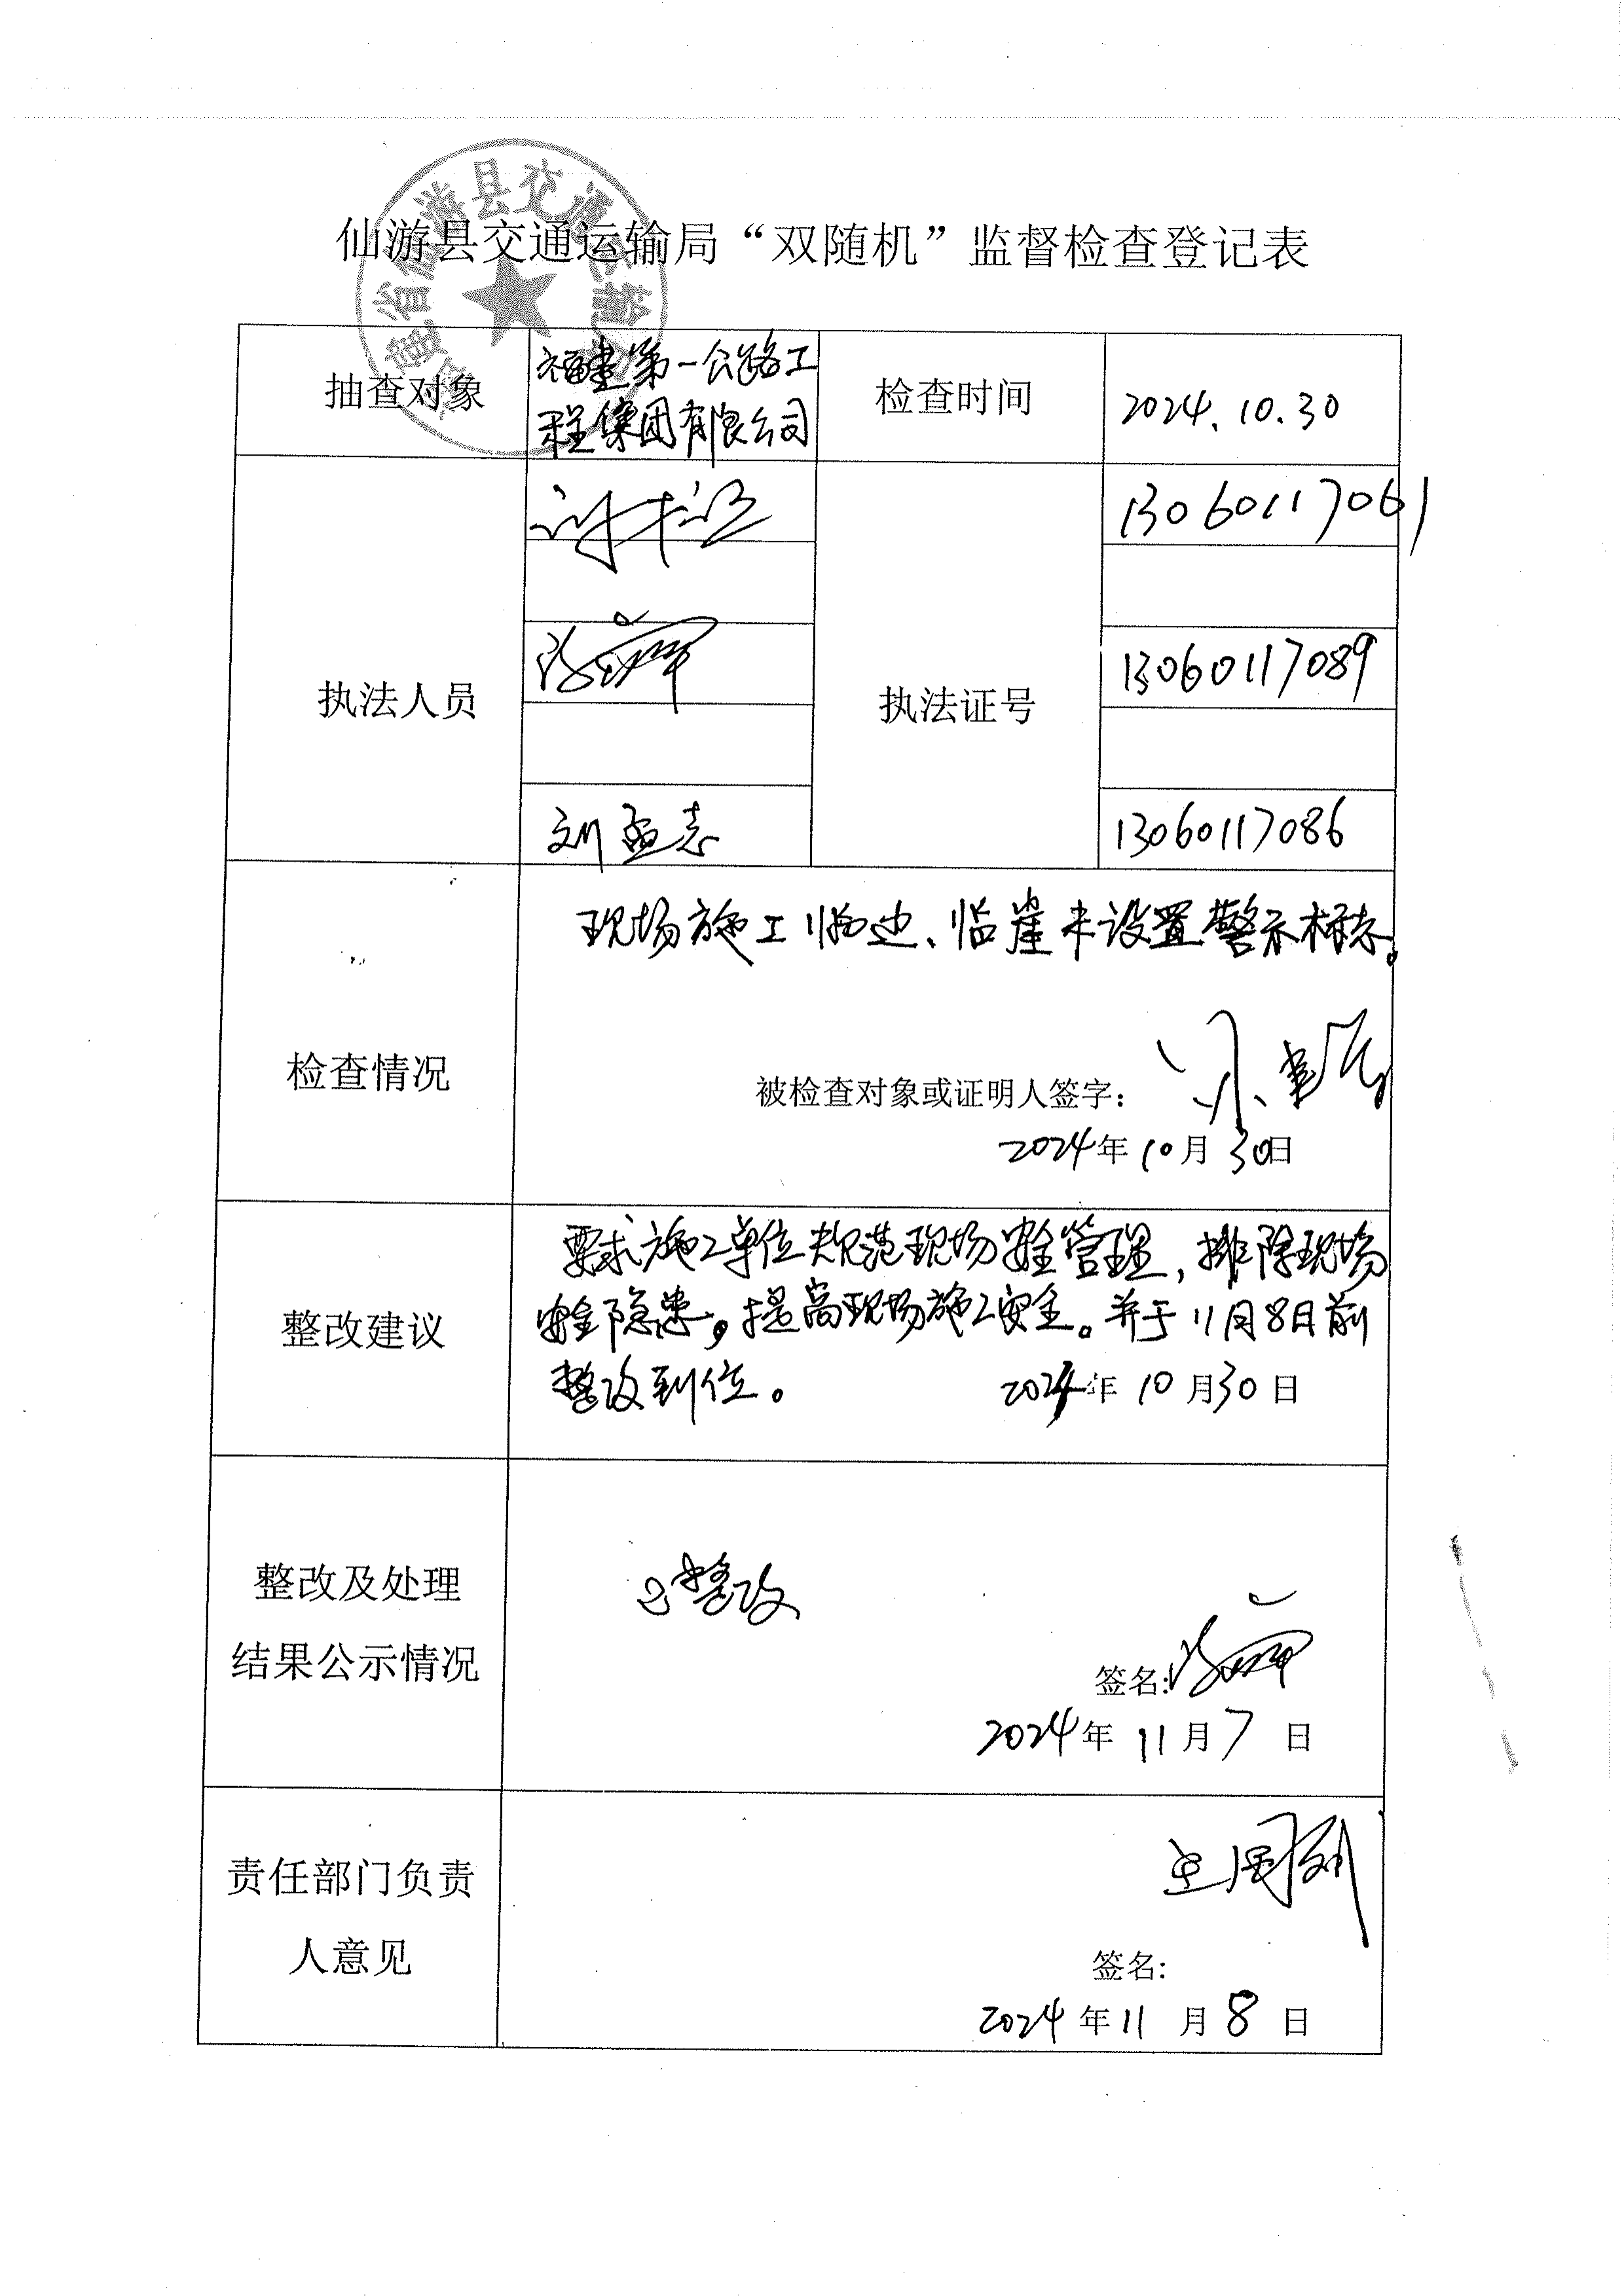 仙游县交通运输局“双随机”监督检查登记表
抽查对象
福建第一公路工
程集团有限公司
检查时间
2024.10.30
执法人员
刘孟志
执法证号
13060117061
13060117089
13060117086
检查情况
现场施工临边、临崖未设置警示标志。
被检查对象或证明人签字：
2024年10月30日
整改建议
要求施工单位规范现场安全管理，排除现场
安全隐患，提高现场施工安全。并于11月8日前
整改到位。
2024年10月30日
整改及处理
结果公示情况
已整改
签名:
2024年11月7日
责任部门负责
人意见
签名:
2024年11月8日